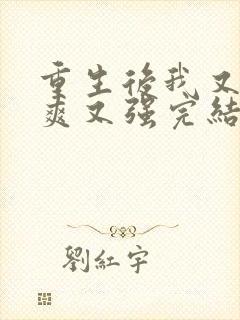 重生後我又
爽又強完結
劉紅宇